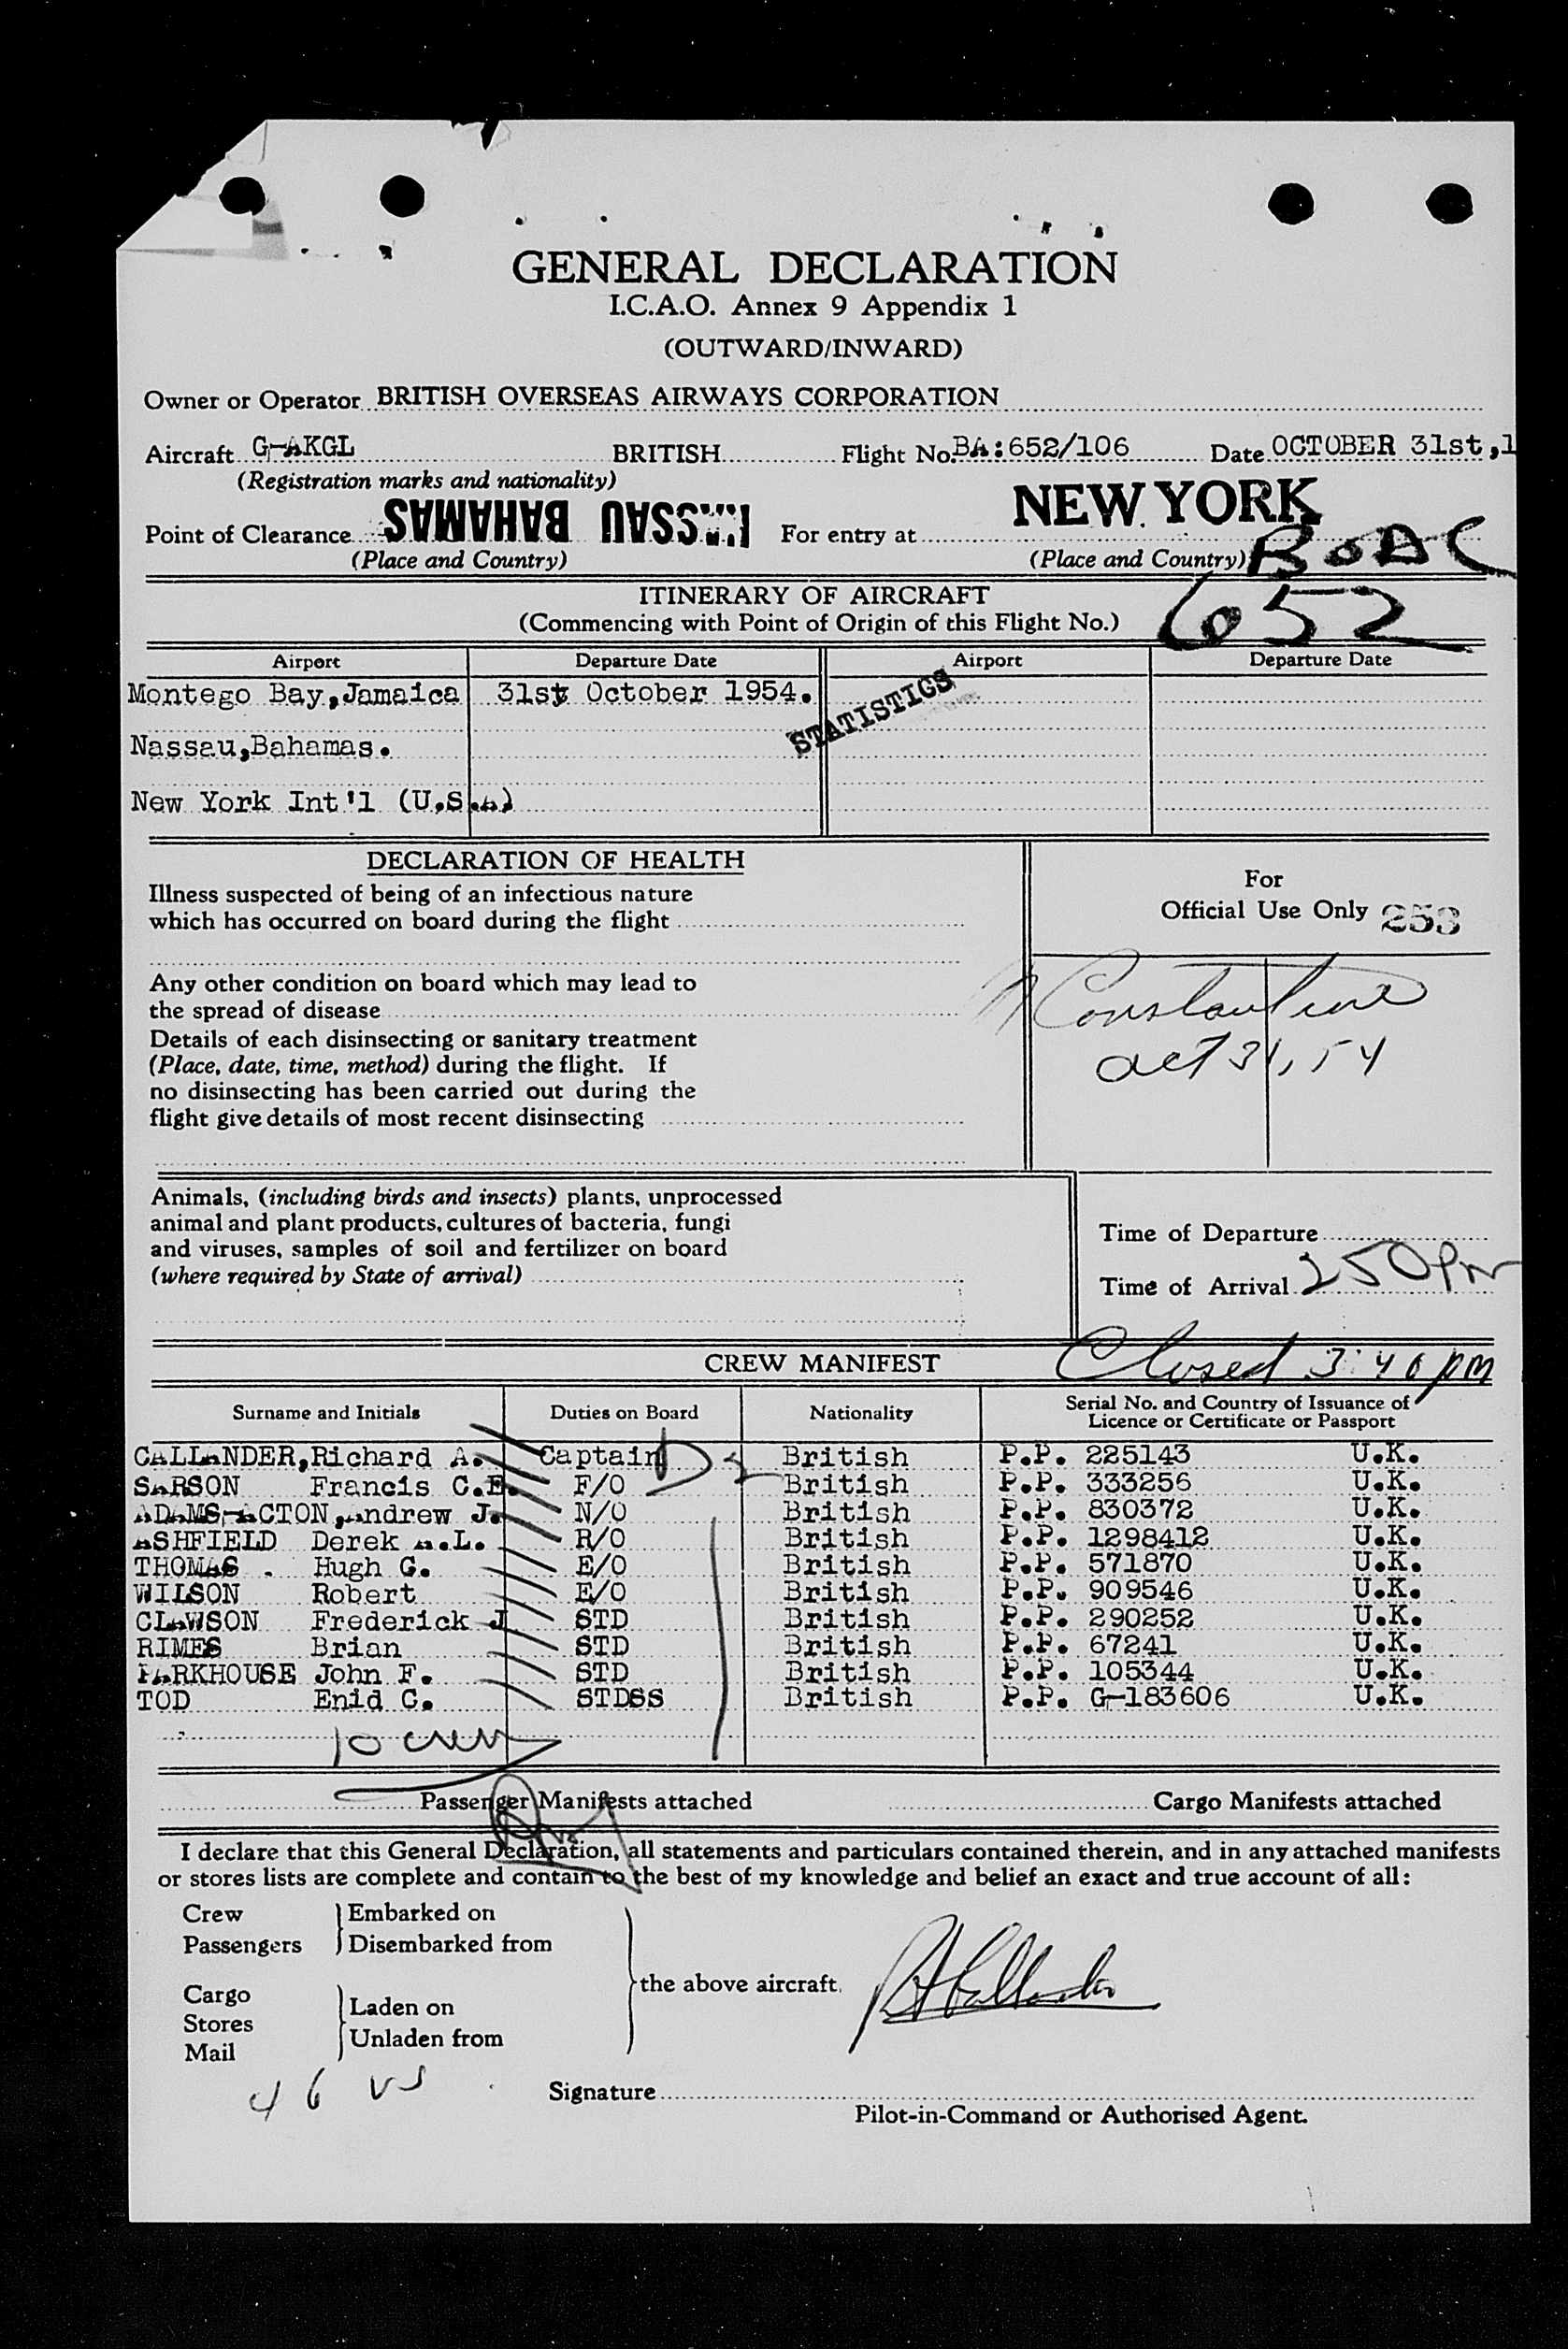 GENERAL DECLARATION
I.C.A.O. Annex 9 Appendix 1
(OUTWARD/INWARD)
Owner or Operator BRITISH OVERSEAS AIRWAYS CORPORATION
Aircraft G-AKGL BRITISH Flight No. BA:652/106 Date OCTOBER 31st,1
(Registration marks and nationality)
Point of Clearance NASSAU BAHAMAS For entry at NEW YORK
(Place and Country) (Place and Country) BOAC
652
ITINERARY OF AIRCRAFT
(Commencing with Point of Origin of this Flight No.)
Airport Departure Date Airport Departure Date
Montego Bay,Jamaica 31st October 1954.
STATISTICS
Nassau,Bahamas.
New York Int'l (U.S.A)
DECLARATION OF HEALTH
Illness suspected of being of an infectious nature
which has occurred on board during the flight
For
Official Use Only 253
Any other condition on board which may lead to
the spread of disease
Details of each disinsecting or sanitary treatment
(Place, date, time, method) during the flight. If
no disinsecting has been carried out during the
flight give details of most recent disinsecting
Constantine
Oct 31, 54
Animals, (including birds and insects) plants, unprocessed
animal and plant products, cultures of bacteria, fungi
and viruses, samples of soil and fertilizer on board
(where required by State of arrival)
Time of Departure
Time of Arrival 250 Pm
Closed 3:40 pm
CREW MANIFEST
Surname and Initials Duties on Board Nationality Serial No. and Country of Issuance of
Licence or Certificate or Passport
CALLANDER,Richard A. Captain British P.P. 225143 U.K.
SARSON Francis C.E. F/O British P.P. 333256 U.K.
ADAMS-ACTON,Andrew J. N/O British P.P. 830372 U.K.
ASHFIELD Derek A.L. R/O British P.P. 1298412 U.K.
THOMAS . Hugh G. E/O British P.P. 571870 U.K.
WILSON Robert E/O British P.P. 909546 U.K.
CLAWSON Frederick J STD British P.P. 290252 U.K.
RIMES Brian STD British P.P. 67241 U.K.
PARKHOUSE John F. STD British P.P. 105344 U.K.
TOD Enid C. STDSS British P.P. G-183606 U.K.
10 crew
Passenger Manifests attached Cargo Manifests attached
I declare that this General Declaration, all statements and particulars contained therein, and in any attached manifests
or stores lists are complete and contain to the best of my knowledge and belief an exact and true account of all:
Crew Embarked on
Passengers Disembarked from
the above aircraft.
Cargo
Stores
Mail
Laden on
Unladen from
RACallander
46
Signature
Pilot-in-Command or Authorised Agent.